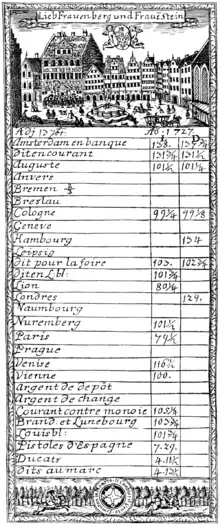 Lieb Frauenberg und Fraue Stein
Adj 1376r: Ao. 1727.
Amsterdam en banque 138. 137¾
Dit en courant 131¾ 131½
Auguste 101½ 101¼
Anvers
Bremen
Breslau
Cologne 99¾ 99⅛
Geneve
Hambourg 134
Leipsig
Dit pour la foire 103. 102¾
Dit en Lbl: 101¾
Lion 80¼
Londres 129.
Naumbourg
Nuremberg 101½
Paris 79½
Prague
Venise 116½
Vienne 100.
Argent de depôt
Argent de change
Courant contre monoie 103¼
Brand. et Lunebourg 103¾
Louis bl: 101¾
Pistoles d'Espagne 7.29.
Ducats 4.11½
Dits au marc 4.12½